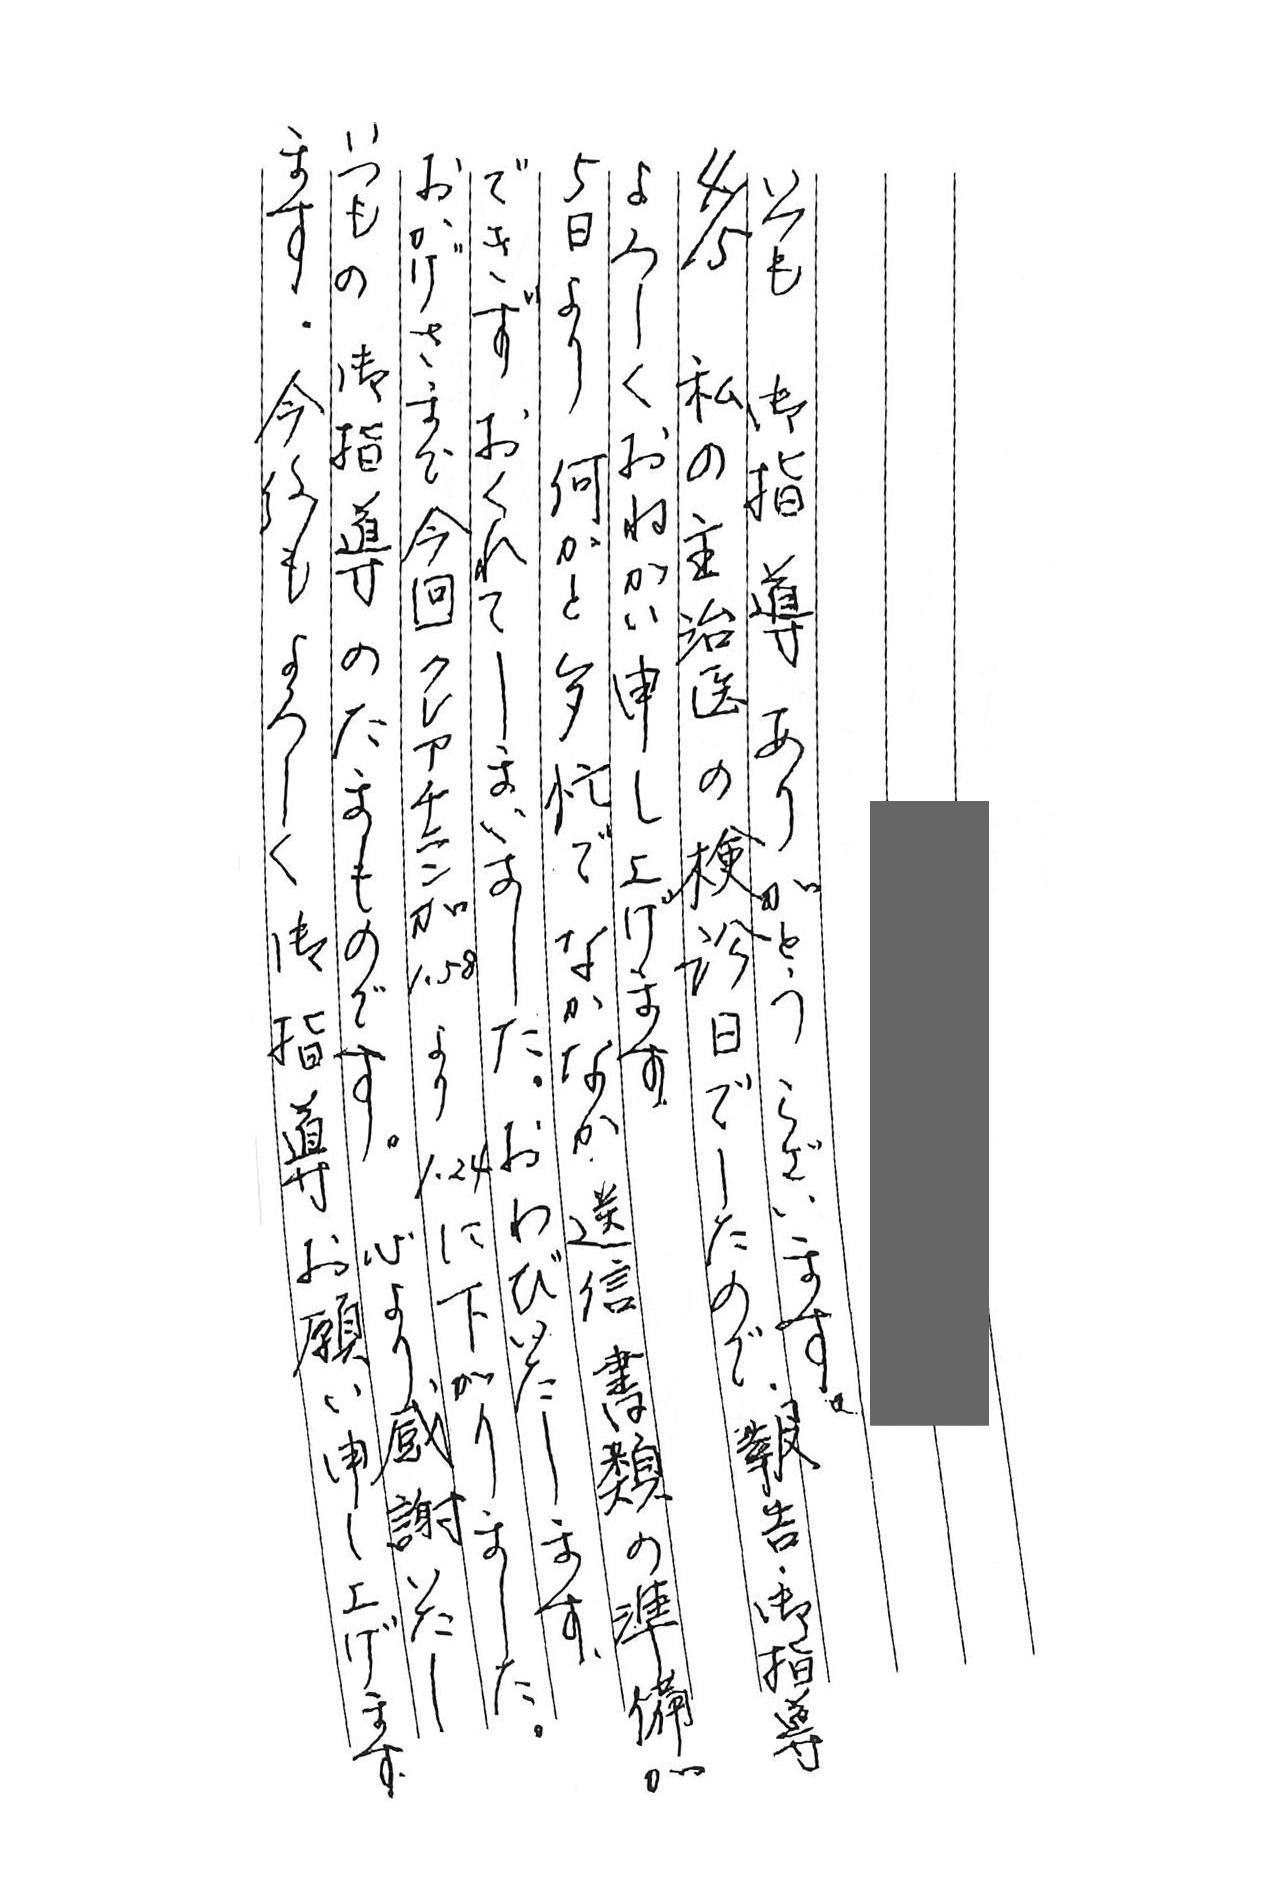 いつも 御指導ありがとうございます。
4/15 私の主治医の検診日でしたので、報告、御指導
よろしくおねがい申し上げます。
5日より 何かと多忙で なかなか、送信書類の準備が
できず おくれてしまいました。おわびいたします。
おかげさまで 今回クレアチニンが 1.58 より 1.24に下がりました。
いつもの 御指導のたまものです。 心より、感謝いたし
ます。今後もよろしく 御指導お願い申し上げます。